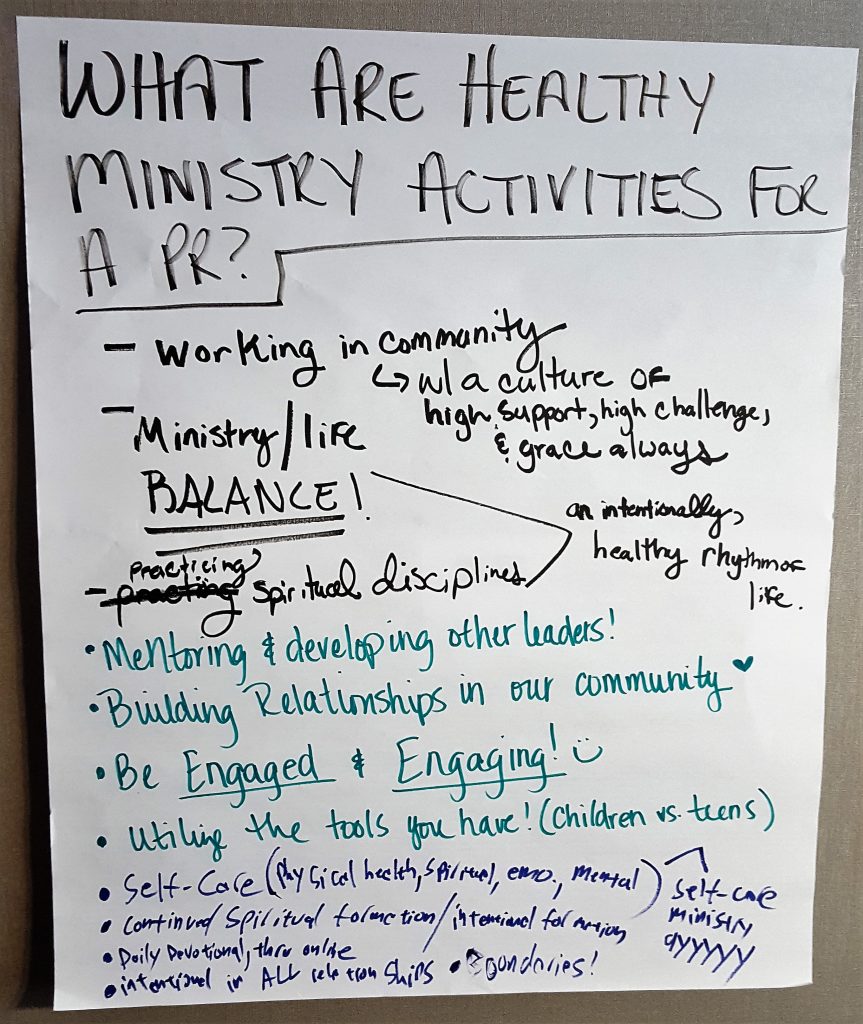 WHAT ARE HEALTHY
MINISTRY ACTIVITIES FOR
A PR?
- Working in community
↳ w/ a culture of
high support, high challenge,
& grace always
- Ministry/life
BALANCE!
an intentionally,
healthy rhythm of
life.
practicing
- practing spiritual disciplines
• Mentoring & developing other leaders!
• Building Relationships in our community ♥
• Be Engaged & Engaging! ☺
• Utilize the tools you have! (Children vs. teens)
• Self-Care (Physical health, Spiritual, emo., Mental)
self-care
ministry
ayyyyy
• Continued Spiritual formation/intentional formation
• Daily Devotional, thru online
• intentional in ALL relationships • Boundaries!